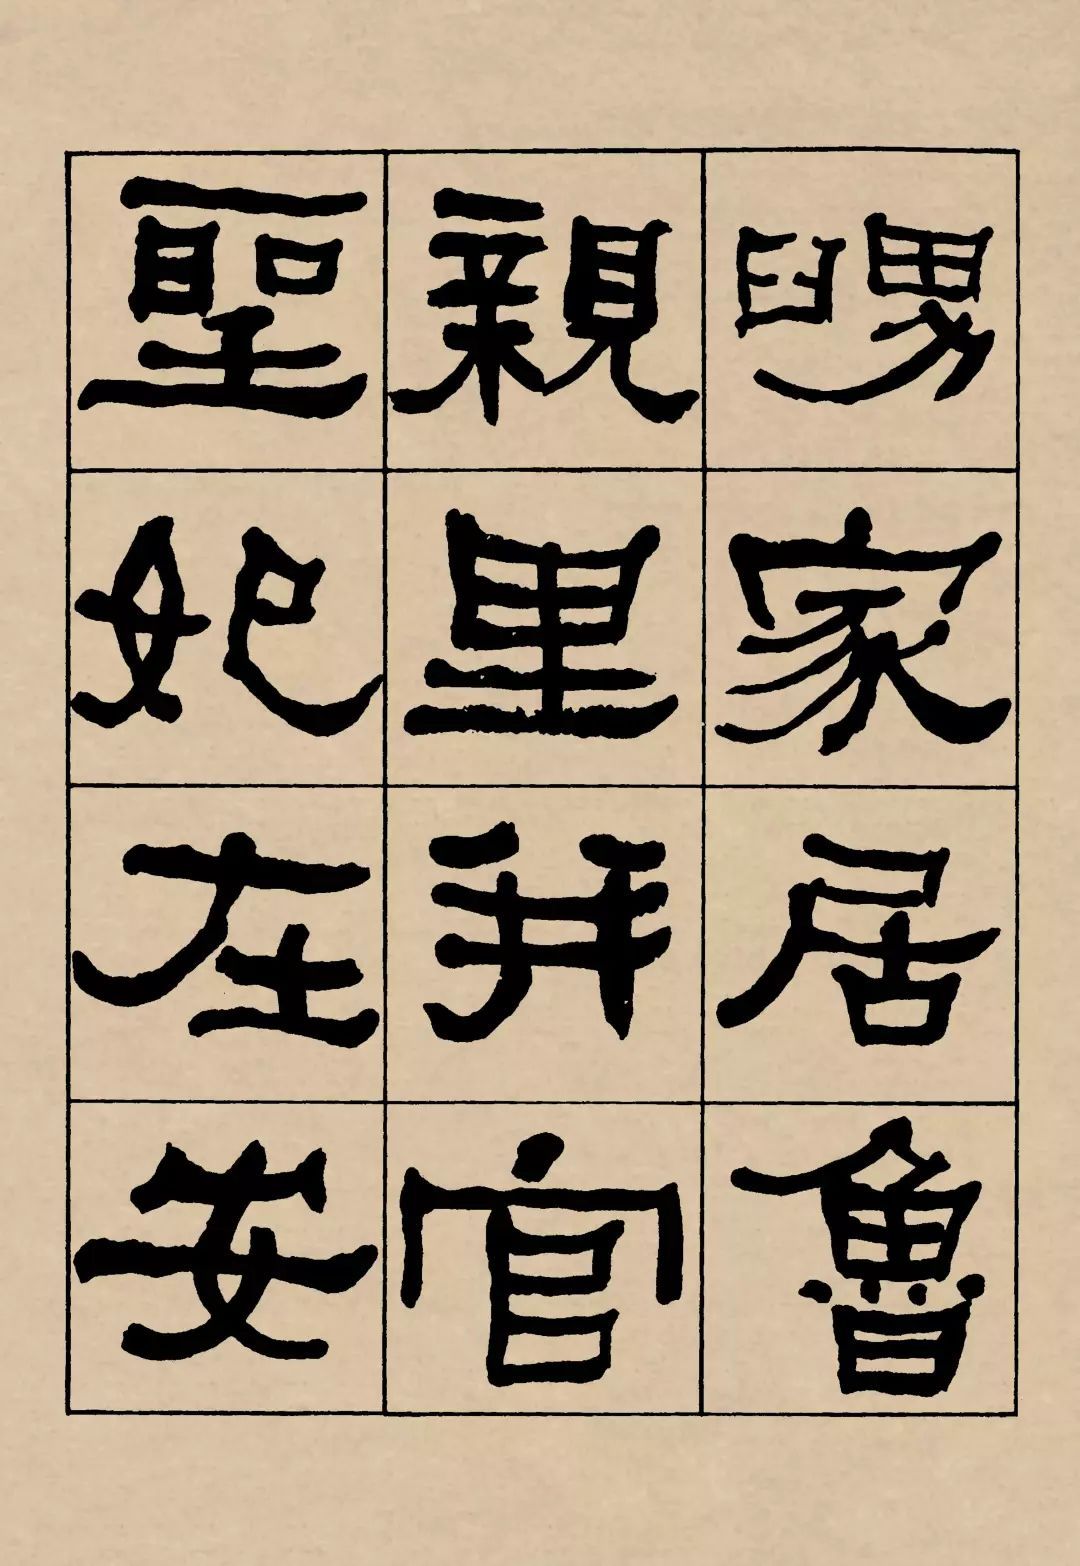 舅家居魯
親里并官
聖妃在安